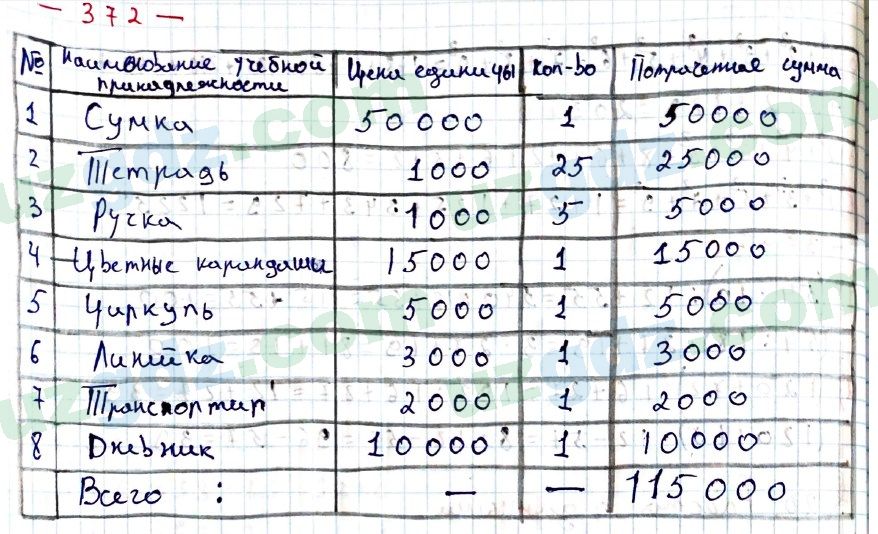 — 372 —
№ Наименование учебной принадлежности Цена единицы Кол-во Потраченная сумма
1 Сумка 50000 1 50000
2 Тетрадь 1000 25 25000
3 Ручка 1000 5 5000
4 Цветные карандаши 15000 1 15000
5 Циркуль 5000 1 5000
6 Линийка 3000 1 3000
7 Транспортир 2000 1 2000
8 Дневник 10000 1 10000
Всего : — — 115000
uzgdz.com